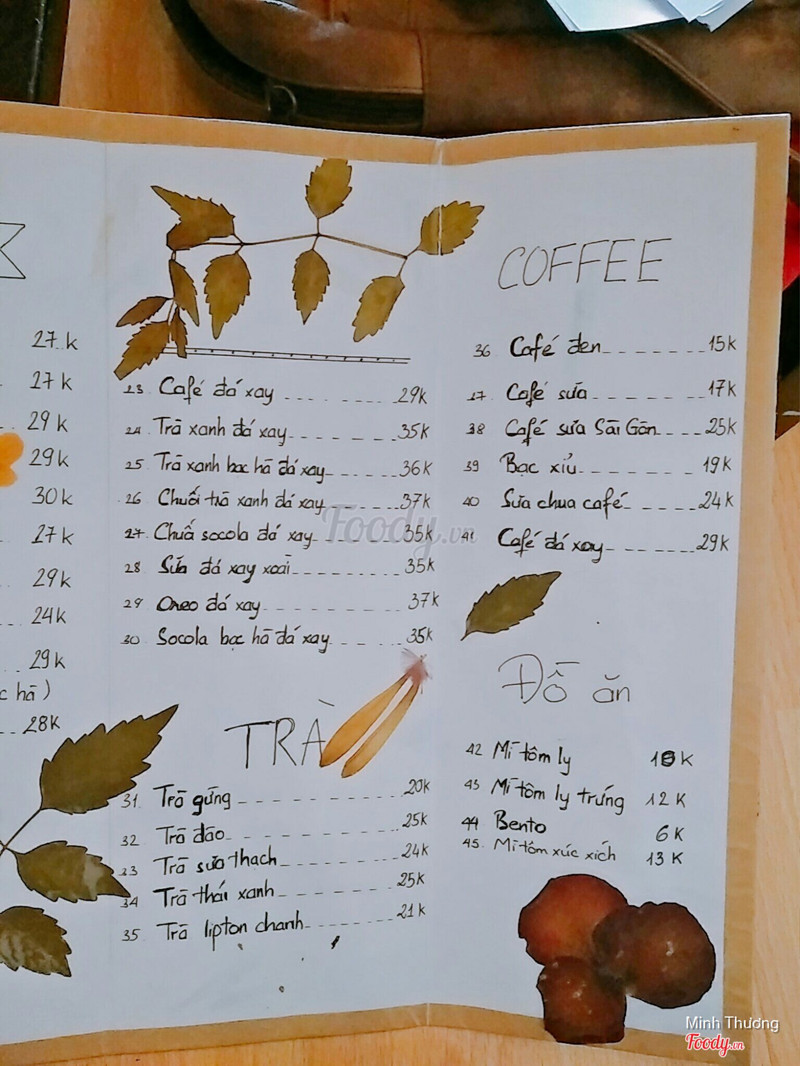 27 k
27 k
29 k
29 k
30 k
27 k
29 k
24 k
29 k
hà)
28k
23 Café đá xay 29k
24 Trà xanh đá xay 35k
25 Trà xanh bạc hà đá xay 36k
26 Chuối trà xanh đá xay 37k
27 Chuấ socola đá xay 35k
28 Sữa đá xay xoài 35k
29 Oreo đá xay 37k
30 Socola bạc hà đá xay 35k
TRÀ
31 Trà gừng 20k
32 Trà đào 25k
33 Trà sữa thạch 24k
34 Trà thái xanh 25k
35 Trà lipton chanh 21k
COFFEE
36 Café đen 15k
37 Café sữa 17k
38 Café sữa Sài Gòn 25k
39 Bạc xỉu 19k
40 Sữa chua café 24k
41 Café đá xay 29k
Đồ ăn
42 Mì tôm ly 10 K
43 Mì tôm ly trứng 12 K
44 Bento 6 K
45 Mì tôm xúc xích 13 K
Foody.vn
Minh Thương
Foody.vn